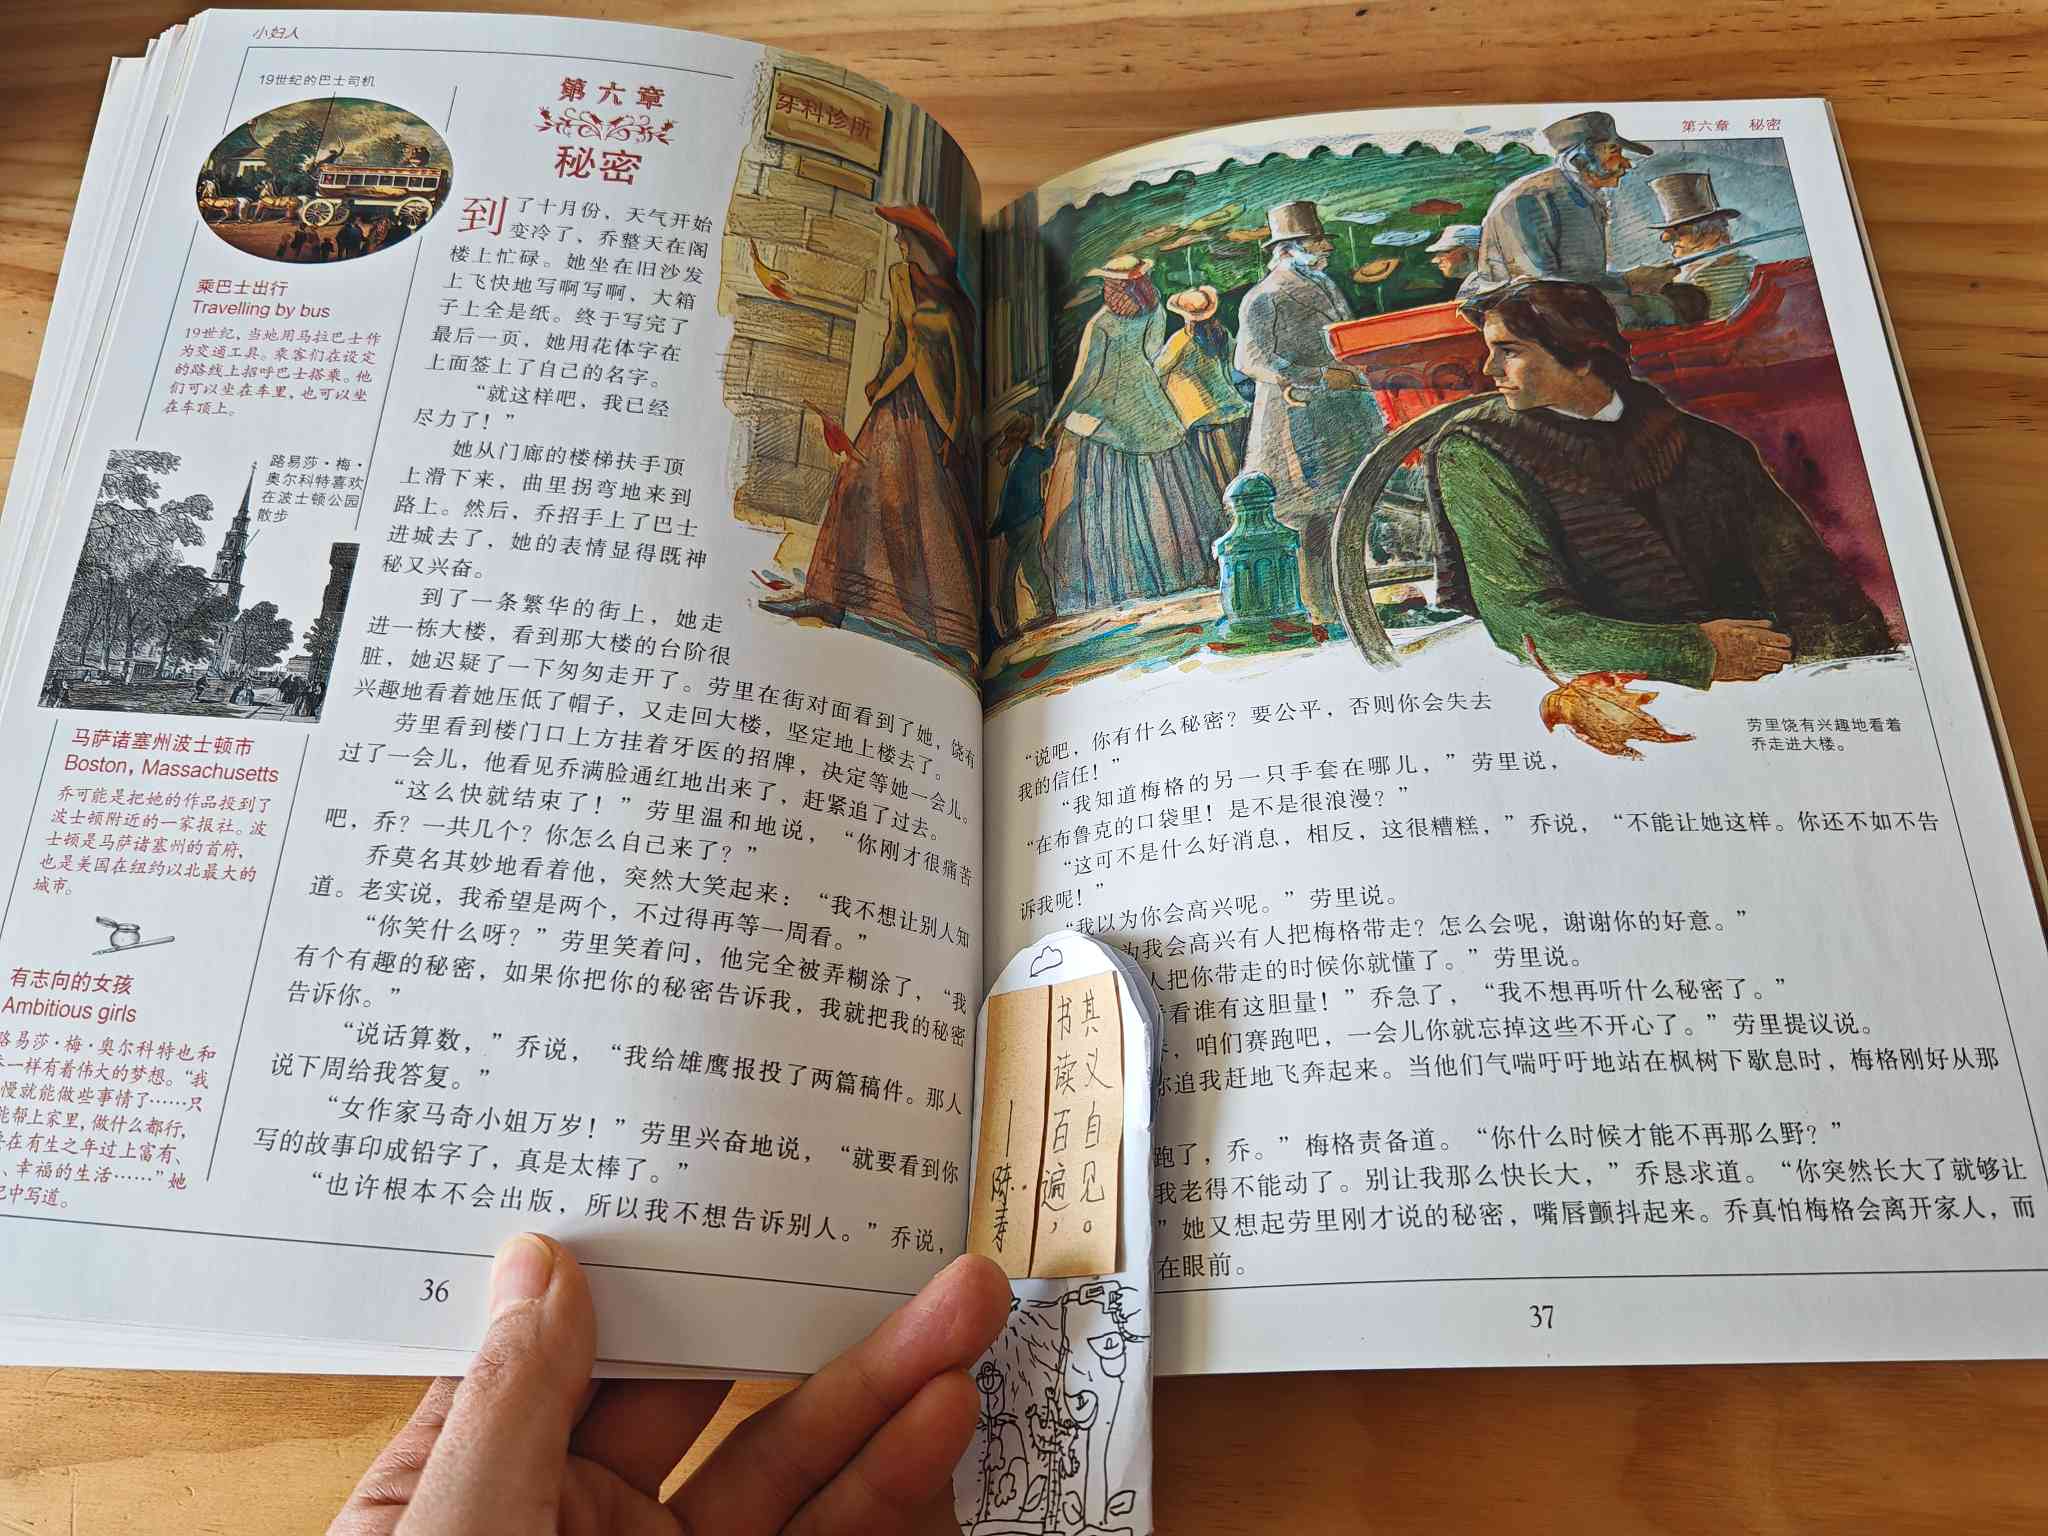 小妇人
19世纪的巴士司机
乘巴士出行
Travelling by bus
19世纪，当地用马拉巴士作
为交通工具。乘客们在设定
的路线上招呼巴士搭乘。他
们可以坐在车里，也可以坐
在车顶上。
路易莎·梅·
奥尔科特喜欢
在波士顿公园
散步
马萨诸塞州波士顿市
Boston, Massachusetts
乔可能是把她的作品投到了
波士顿附近的一家报社。波
士顿是马萨诸塞州的首府，
也是美国在纽约以北最大的
城市。
有志向的女孩
Ambitious girls
路易莎·梅·奥尔科特也和
一样有着伟大的梦想。“我
慢就能做些事情了……只
能帮上家里，做什么都行，
在有生之年过上富有、
、幸福的生活……”她
记中写道。
第六章
秘密
到了十月份，天气开始
变冷了，乔整天在阁
楼上忙碌。她坐在旧沙发
上飞快地写啊写啊，大箱
子上全是纸。终于写完了
最后一页，她用花体字在
上面签上了自己的名字。
“就这样吧，我已经
尽力了！”
她从门廊的楼梯扶手顶
上滑下来，曲里拐弯地来到
路上。然后，乔招手上了巴士
进城去了，她的表情显得既神
秘又兴奋。
到了一条繁华的街上，她走
进一栋大楼，看到那大楼的台阶很
脏，她迟疑了一下匆匆走开了。劳里在街对面看到了她，饶有
兴趣地看着她压低了帽子，又走回大楼，坚定地上楼去了。
劳里看到楼门口上方挂着牙医的招牌，决定等她一会儿。
过了一会儿，他看见乔满脸通红地出来了，赶紧追了过去。
“这么快就结束了！”劳里温和地说，“你刚才很痛苦
吧，乔？一共几个？你怎么自己来了？”
乔莫名其妙地看着他，突然大笑起来：“我不想让别人知
道。老实说，我希望是两个，不过得再等一周看。”
“你笑什么呀？”劳里笑着问，他完全被弄糊涂了，“我
有个有趣的秘密，如果你把你的秘密告诉我，我就把我的秘密
告诉你。”
“说话算数，”乔说，“我给雄鹰报投了两篇稿件。那人
说下周给我答复。”
“女作家马奇小姐万岁！”劳里兴奋地说，“就要看到你
写的故事印成铅字了，真是太棒了。”
“也许根本不会出版，所以我不想告诉别人。”乔说，
36
牙科诊所
第六章 秘密
劳里饶有兴趣地看着
乔走进大楼。
“说吧，你有什么秘密？要公平，否则你会失去
我的信任！”
“我知道梅格的另一只手套在哪儿，”劳里说，
“在布鲁克的口袋里！是不是很浪漫？”
“这可不是什么好消息，相反，这很糟糕，”乔说，“不能让她这样。你还不如不告
诉我呢！”
“我以为你会高兴呢。”劳里说。
为我会高兴有人把梅格带走？怎么会呢，谢谢你的好意。”
人把你带走的时候你就懂了。”劳里说。
看看谁有这胆量！”乔急了，“我不想再听什么秘密了。”
，咱们赛跑吧，一会儿你就忘掉这些不开心了。”劳里提议说。
你追我赶地飞奔起来。当他们气喘吁吁地站在枫树下歇息时，梅格刚好从那
跑了，乔。”梅格责备道。“你什么时候才能不再那么野？”
我老得不能动了。别让我那么快长大，”乔恳求道。“你突然长大了就够让
”她又想起劳里刚才说的秘密，嘴唇颤抖起来。乔真怕梅格会离开家人，而
在眼前。
37
书读百遍，
其义自见。
—陈寿